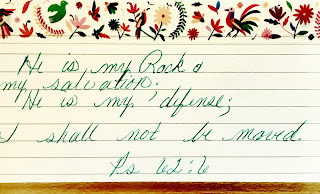 He is my Rock &
my salvation;
He is my defense;
I shall not be moved.
Ps 62:6